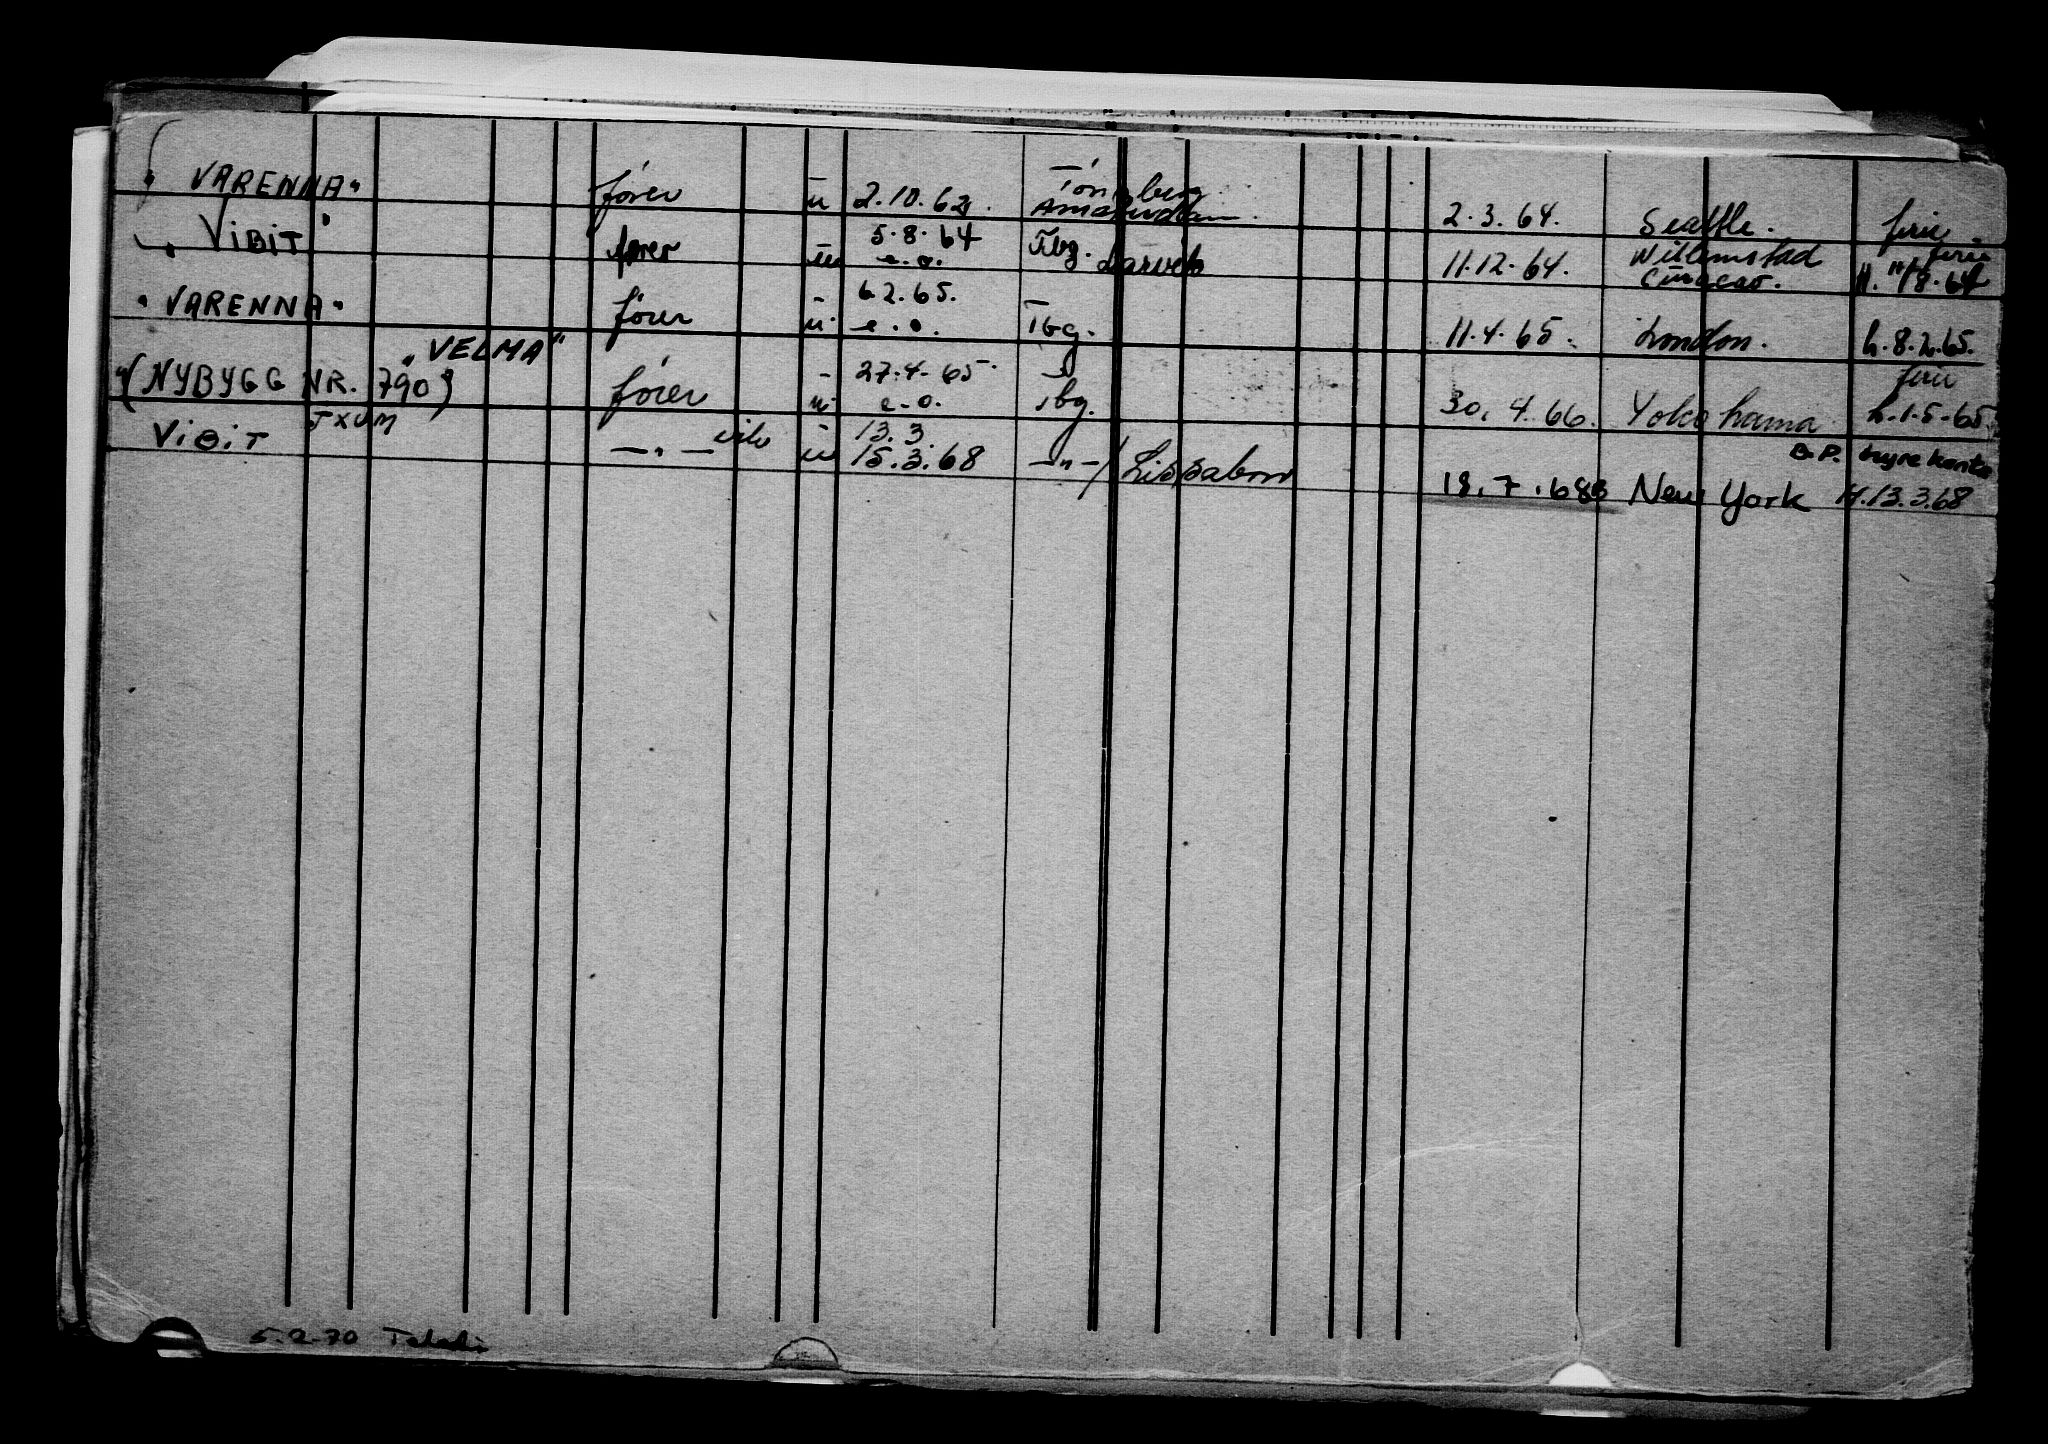 "VARENNA" fører u 2.10.62. Tönsberg Amsterdam. 2.3.64. Seattle. ferie.
"VIBIT" fører 5.8.64 e.o. Tbg. 11.12.64. Willemstad Curacao. ferie h. 11/8.64
"VARENNA" fører u. 6.2.65. e.o. Tbg. 11.4.65. London. h.8.2.65.
"VELMA"
"(NYBYGG NR. 790)" fører u. 27.4.65. e.o. Tbg. 30.4.66. Yokohama ferie h.1.5.65.
VIBIT JXUM —"— vik u 13.3. 15.3.68 —"—/Lissabon 18.7.68 New York B.P. hyrekonto H.13.3.68
5.2.70